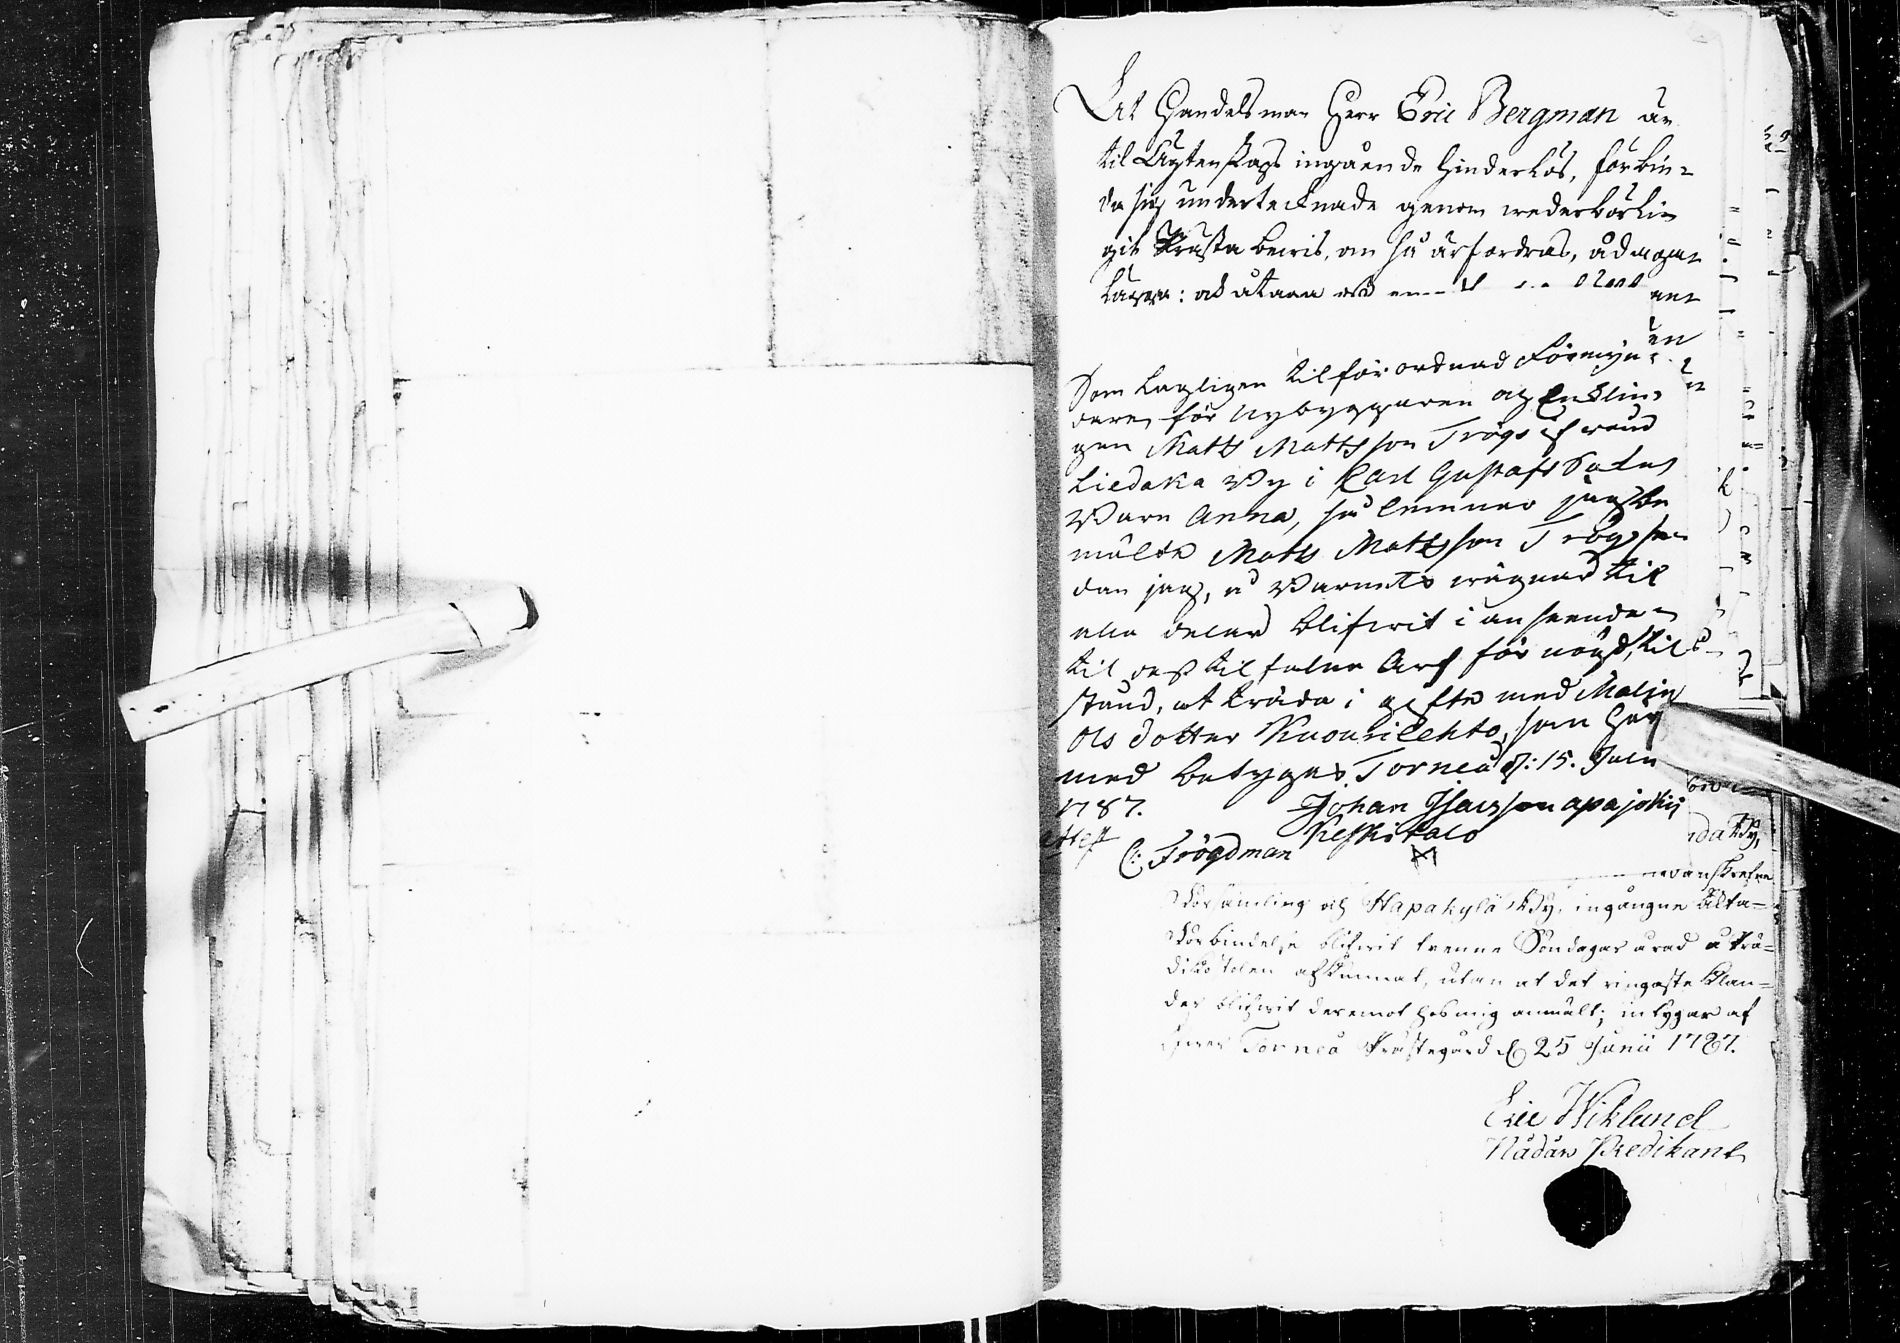 At Handelsman Herr Eric Bergman är
til Ägtenskaps ingående hinderlös, förbin-
da sig undertecknade genom wederbörlin-
git Prästa bewis, om så ärfordras, ådagar
lägga: at utaan
Som lagligen tilförordnad Förmyn-
dare för Nybyggaren og Enklin-
gen Matts Mattsson Trögs if rånd
Liedaka By i Carl Gustafs Sokns
Barn Anna, så lemnar jag be
mälte Matts Mattsson Trögs se-
dan jag, å Barnets wägnar til
alla delar blifwit i anseende
til des tilfalne Arf för nögd, tils-
stånd, at träda i gifte med Malin
Ols dotter Kuousilehto, som här
med betygas Torneå d: 15. Julii
1787. Johan Isacsson apajoki
Keskitalo
attest C: Frögdman
ndaby,
ofwanskrefne
Församling och Hapakylä By, ingångne Ägta-
förbindelse blifwit trenne Söndagar å rad å Prä-
dikostolen afkunnat, utan at det ringaste klan-
der blifwit deremot hos mig anmält; intygar af
Öfwer Torneå Prästegård d 25 Junii 1787.
Eric Wiklund
Nådårs Predikant